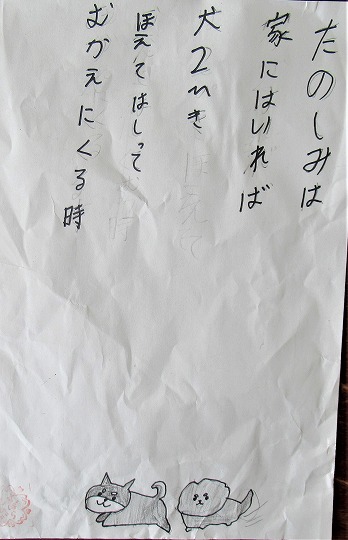 たのしみは
家にはいれば
犬2ひき
ほえてはしって
むかえにくる時